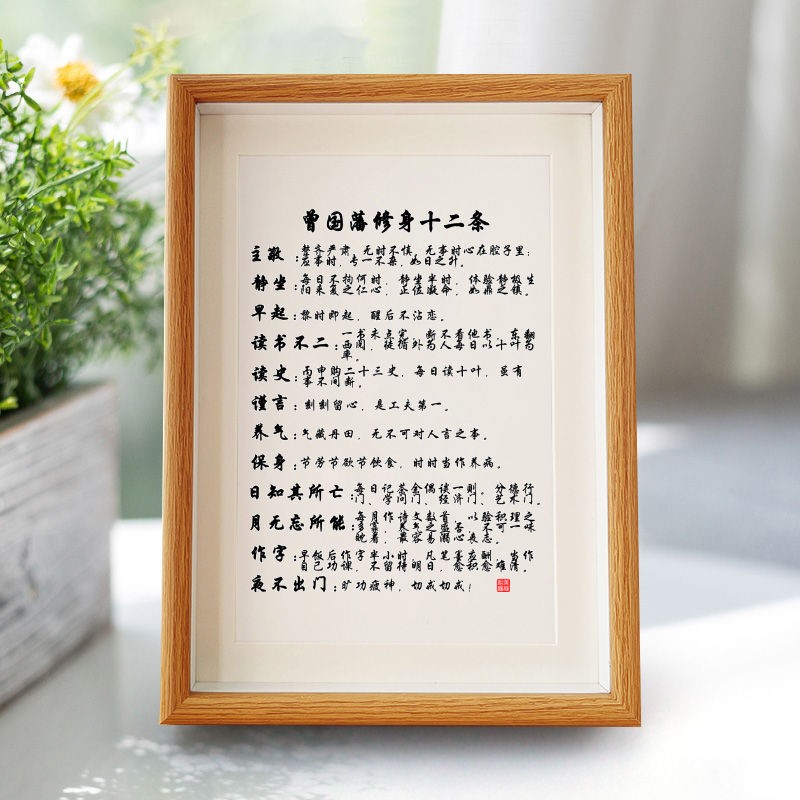 曾国藩修身十二条
主敬：整齐严肃，无时不慎。无事时心在腔子里；
应事时，专一不杂，如日之升。
静坐：每日不拘何时，静坐半时，体验静极生
阳来复之仁心，正位凝命，如鼎之镇。
早起：黎时即起，醒后不沾恋。
读书不二：一书未点完，断不看他书，东翻
西阅，徒循外为人每日以十叶为
率。
读史：丙申购二十三史，每日读十叶，虽有
事不间断。
谨言：刻刻留心，是工夫第一。
养气：气藏丹田，无不可对人言之事。
保身：节劳节欲节饮食，时时当作养病。
日知其所亡：每日记茶余偶读一则。分德行
门、学问门、经济门、艺术门。
月无忘所能：每月作诗文数首，以验积理之
多寡，养气之盛否，不可一味
耽着，最容易溺心丧志。
作字：早饭后作字半小时，凡笔墨应酬，当作
自己功课，不留待明日，愈积愈难清。
夜不出门：旷功疲神，切戒切戒！